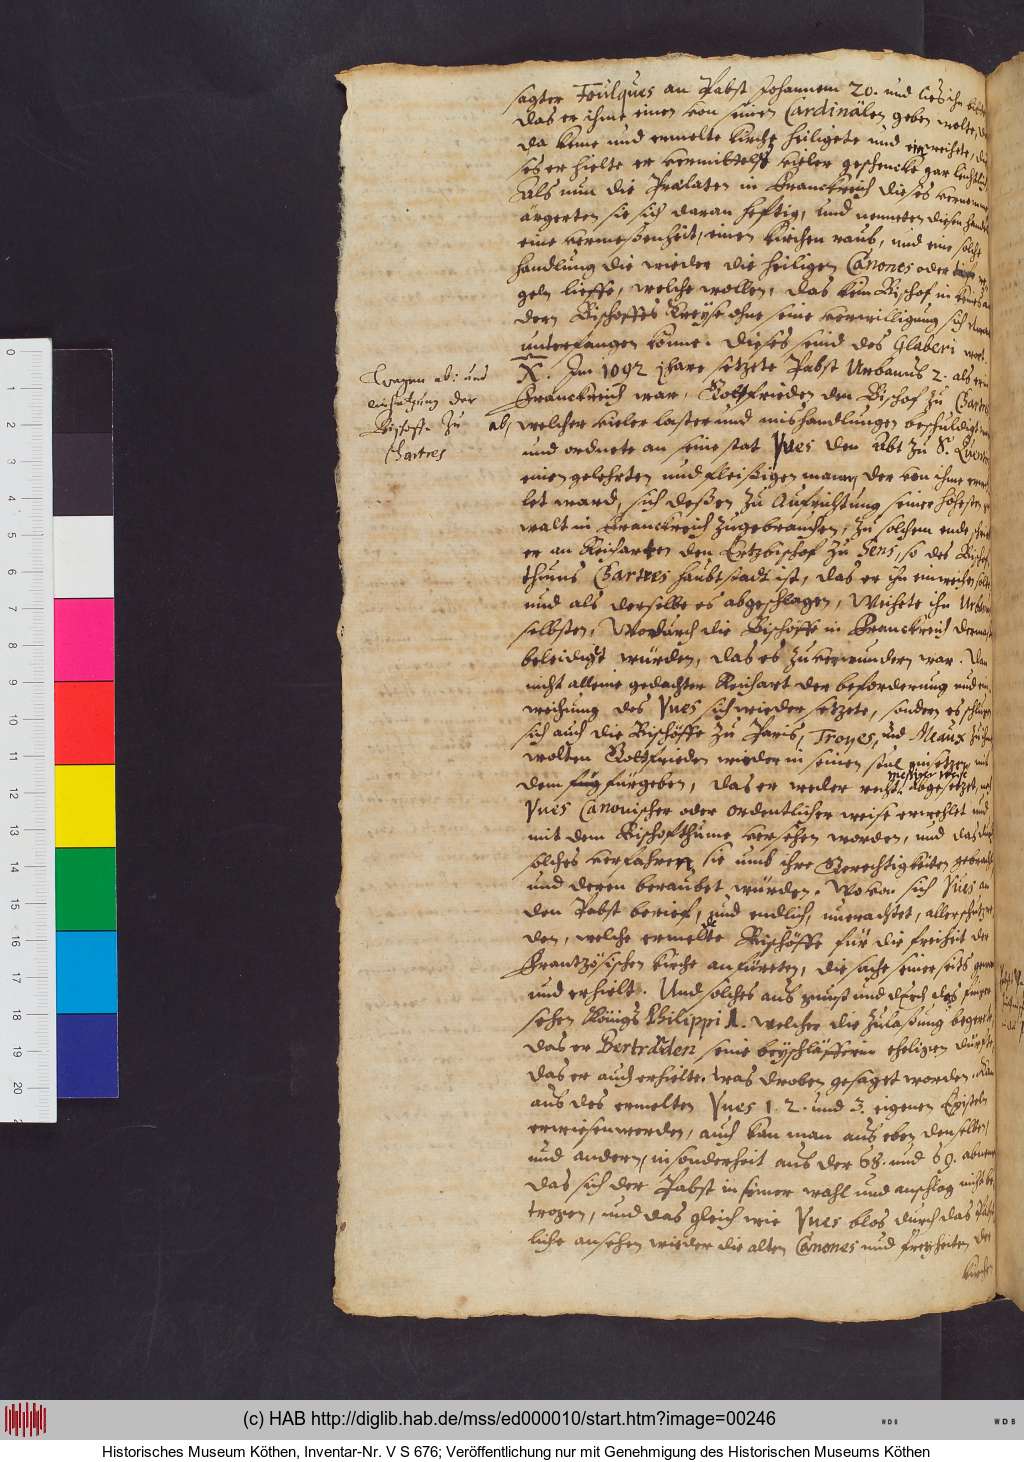 sagter Foulques an Pabst Johannem 20. und ließ ihn
das er ihme einen von seinen Cardinälen geben wolte,
da keme und ermelte kirche heiligete und einweihete,
ses erhielte er vermittelst vieler geschencke gar leichtlich
Als nun die Praelaten in Franckreich dieses vernommen
ärgerten sie sich daran heftig, und nenneten diesen handel
eine vermessenheit, einen kirchen raub, und eine solche
handlung die wieder die heiligen Canones oder
geln lieffe, welche wollen, das kein Bischof in
dern Bischoffes kreyse ohne seine verwilligung sich
unterfangen könne. Dieses seind des Glaberi wort.
X. Im 1092 jhare setzete Pabst Urbanus 2. als er in
Franckreich war, Gottfrieden den Bischof zu Chartres
ab, welcher vieler laster und mishandlungen beschuldigt
und ordnete an seine stat Yves den Abt zu S.
einen gelehrten und fleißigen mann, der von ihme
let ward, sich deßen zu Aufrichtung seiner höhesten
walt in Franckreich zugebrauchen, zu solchem ende
er an Reicharten den Ertzbischof zu Sens, so des Bischof
thums Chartres haubtstadt ist, das er ihn einweihen solte
und als derselbe es abgeschlagen, Weihete ihn Urbanus
selbsten, Wordurch die Bischöffe in Franckreich
beleidigt würden, das es zuverwundern war. Dan
nicht alleine gedachter Reichart der beforderung und ein
weihung des Yves sich wieder setzete, sondern es schlugen
sich auch die Bischöffe zu Paris, Troyes, und Meaux zu ihm
wolten Gottfrieden wieder in seinen stul einsetzen mit
dem fug fürgeben, das er weder recht meßiger weise abgesetzet, noch
Yves Canonischer oder ordentlicher weise erwehlet und
mit dem Bischofthume versehen worden, und das durch
solches verfahren sie umb ihre Gerechtigkeiten gebracht
und deren beraubet würden. Wovon sich Yves an
den Pabst berief, und endlich, unerachtet, aller
den, welche ermelte Bischöffe für die freiheit der
Frantzösischen kirche anfüreten, die sache seinerseits gewan
und erhielt. Und solches aus gunst und durch das
sehen Königs Philippi 1. welcher die zulaßung begerte
das er Bertraden seine beyschläfferin ehelichen dürfte
das er auch erhielte. was droben gesaget worden. kan
aus des ermelten Yves 1. 2. und 3. eigenen Episteln
erwiesen werden, auch kan man aus eben denselben,
und andern, insonderheit aus der 68. und 69. abnemen
das sich der Pabst in seiner wahl und anschlag nicht be
trogen, und das gleich wie Yves blos durch das Päbst
liche ansehen wieder die alten Canones und freyheiten der
kirche
Wegen ab: und
einsetzung der
Bischoffe zu
Chartres
(c) HAB http://diglib.hab.de/mss/ed000010/start.htm?image=00246
Historisches Museum Köthen, Inventar-Nr. V S 676; Veröffentlichung nur mit Genehmigung des Historischen Museums Köthen